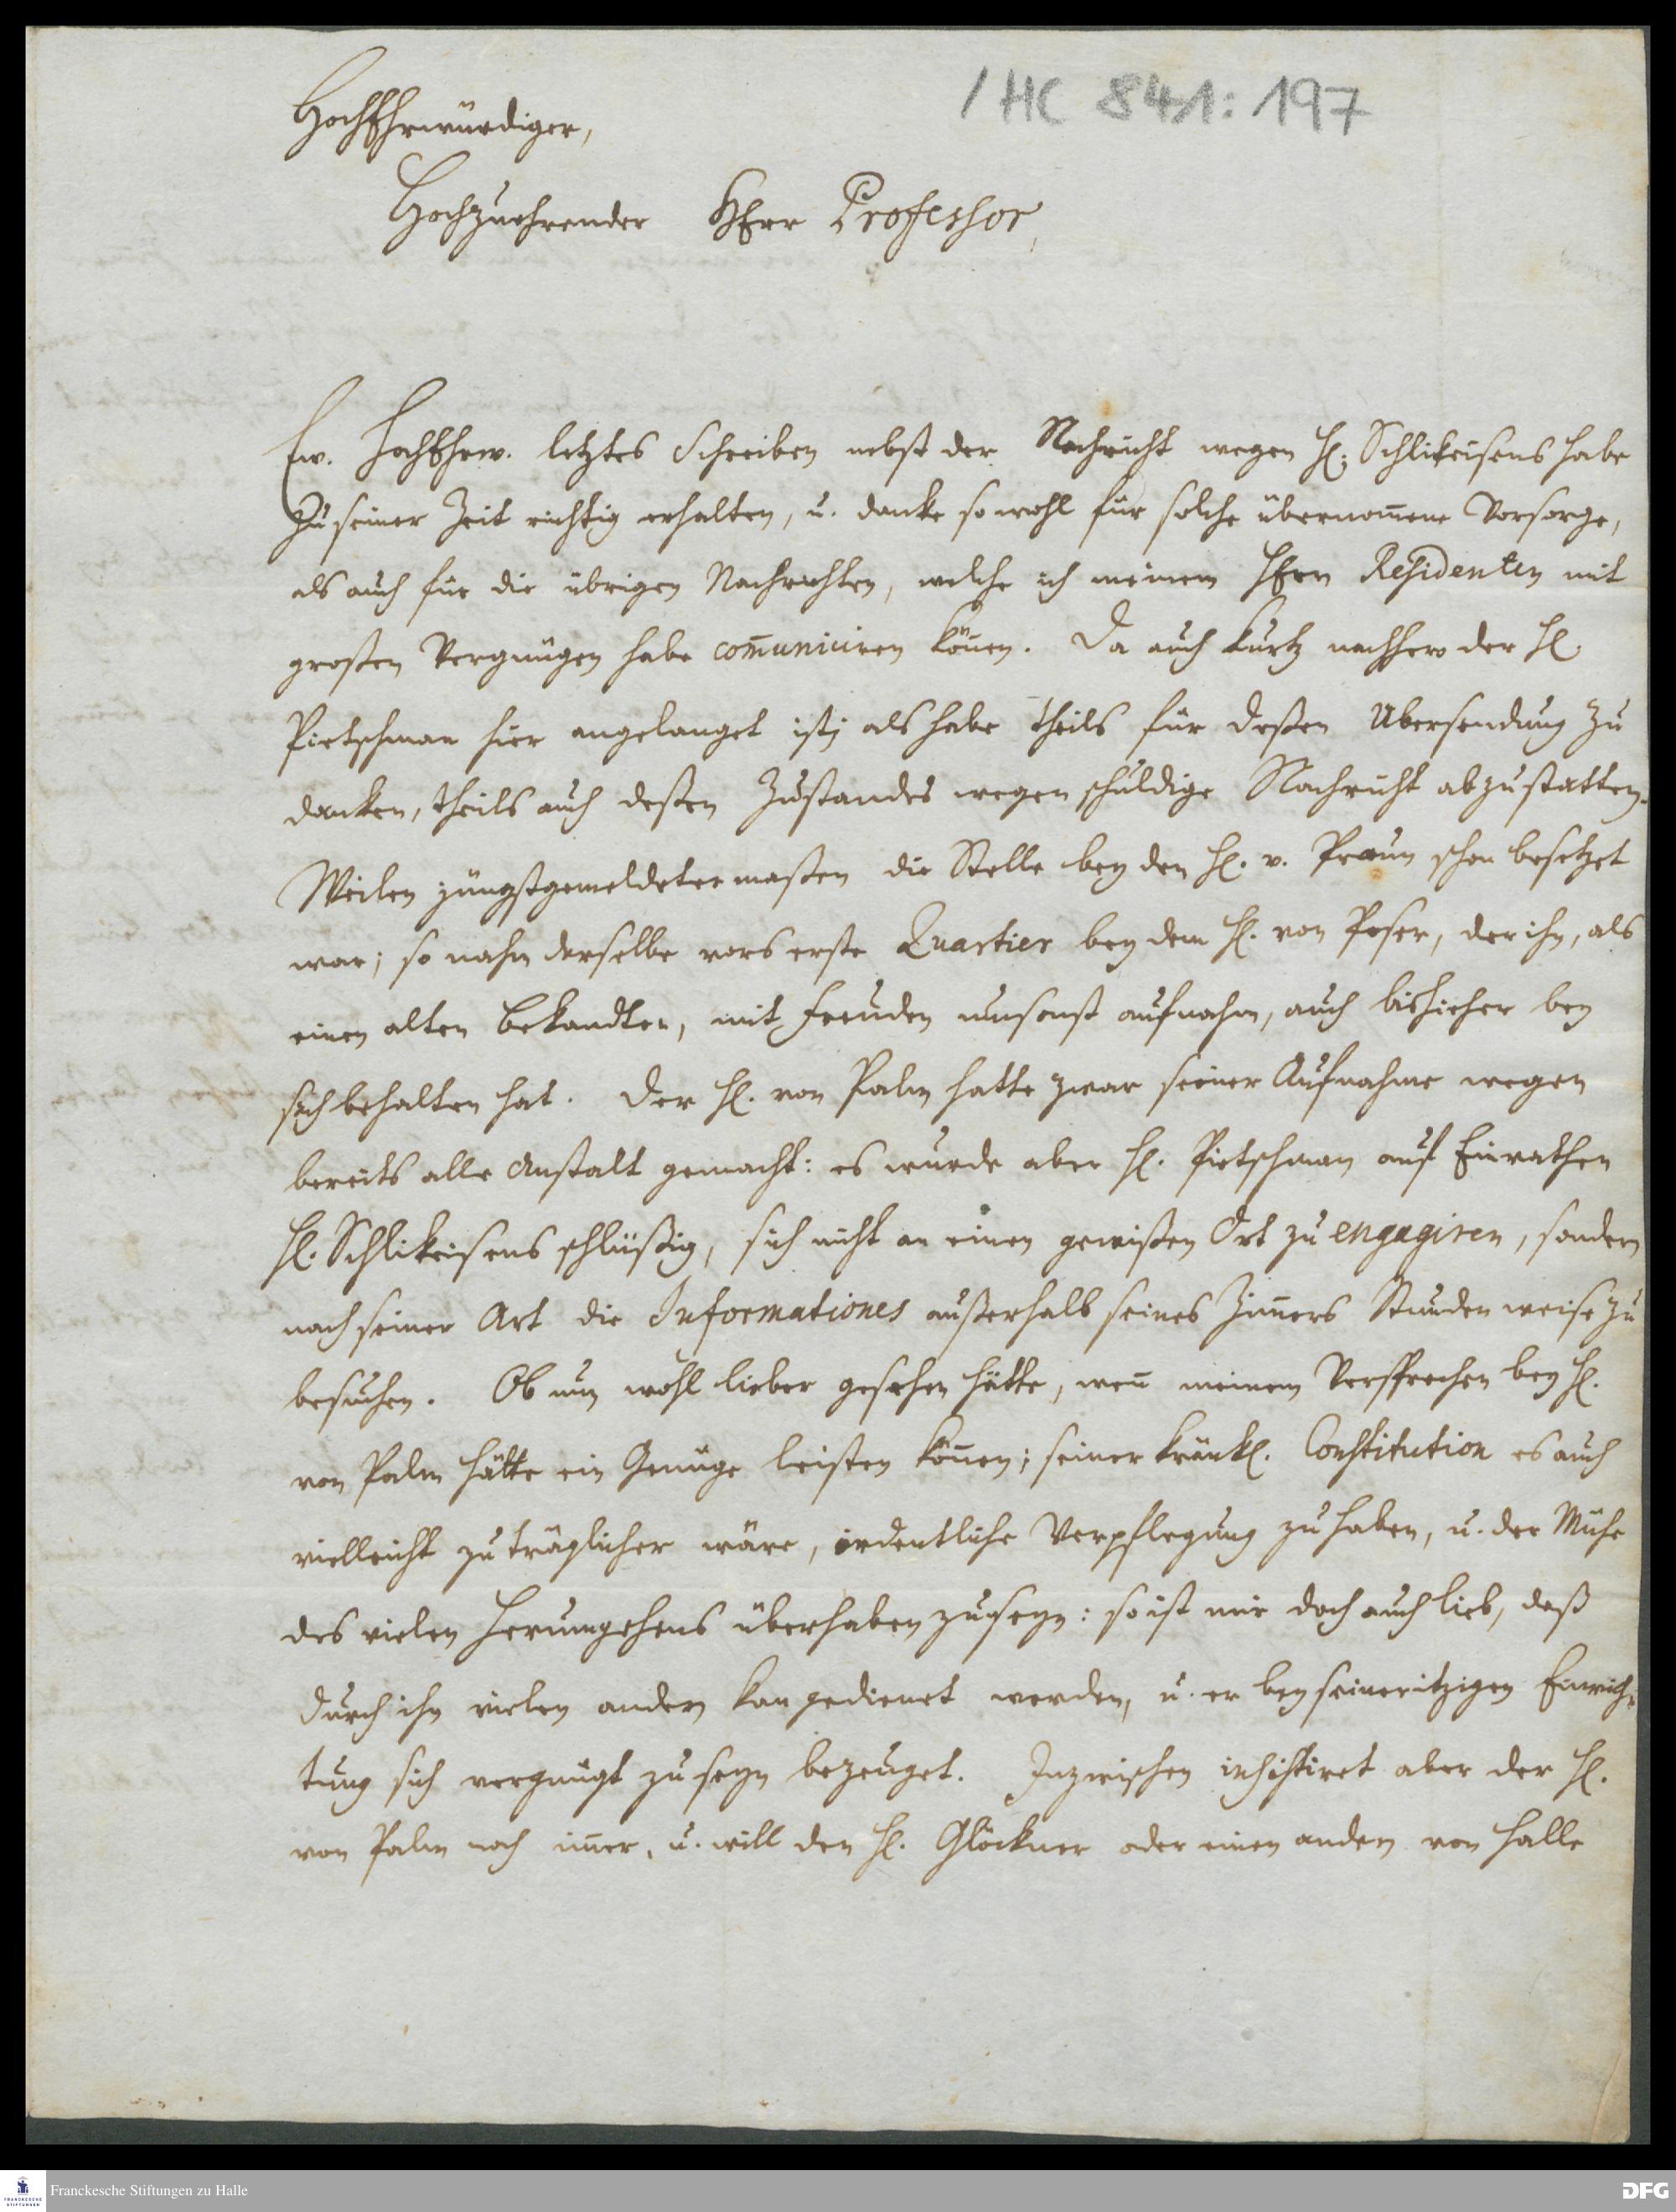 / HC 841: 197
HochEhrwürdiger,
Hochzuehrender HErr Professor,
Ew. HochEhrw. letztes Schreiben nebst der Nachricht wegen H. Schlikeisens habe
zu seiner Zeit richtig erhalten, u. danke sowohl für solche übernom̄ene Vorsorge,
als auch für die übrigen Nachrichten, welche ich meinem HErn Residenten mit
großen Vergnügen habe com̄uniciren kön̄en. Da auch kurtz nachher der H.
Pietschman hier angelanget ist; als habe theils für deßen Ubersendung zu
danken, theils auch deßen Zustandes wegen schuldige Nachricht abzustatten.
Weilen jüngstgemeldetermaßen die Stelle bey den H. v. Praun schon besetzet
war; so nahm derselbe vors erste Quartier bey dem H. von Poser, der ihn, als
einen alten bekandten, mit Freuden umsonst aufnahm, auch bishieher bey
sich behalten hat. Der H. von Palm hatte zwar seiner Aufnahme wegen
bereits alle Anstalt gemacht: es wurde aber H. Pietschman auf Einrathen
H. Schlikeisens schlüßig, sich nicht an einen gewißen Ort zu engagiren, sondern
nach seiner Art die Informationes außerhalb seines Zim̄ers Stundenweise zu
besuchen. Ob nun wohl lieber gesehen hätte, wen̄ meinem Versprechen bey H.
von Palm hätte ein Genüge leisten kön̄en; seiner kränkl. Constitution es auch
vielleicht zuträglicher wäre, ordentliche Verpflegung zu haben, u. der Mühe
des vielen Herumgehens überhaben zu seyn: so ist mir doch auch lieb, daß
durch ihn vielen andern kan gedienet werden, u. er bey seiner itzigen Einrich-
tung sich vergnügt zu seyn bezeuget. Inzwischen insistiret aber der H.
von Palm noch im̄er, u. will den H. Glöckner oder einen andern von Halle
Franckesche Stiftungen zu Halle
FRANCKESCHE STIFTUNGEN
DFG